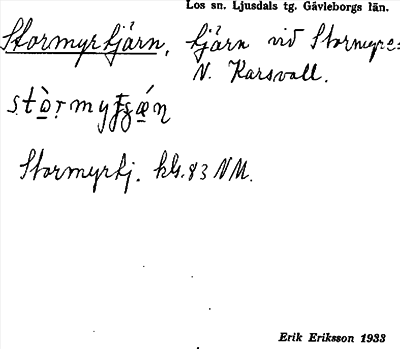 Los sn. Ljusdals tg. Gävleborgs län.
Stormyrtjärn, tjärn vid Stormyre:
N. Karsvall.
Stormyrtj. kbl. 83 NM.
Erik Eriksson 1933